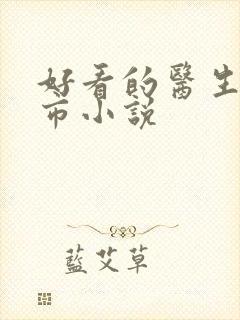 好看的醫生
市小説
藍艾草